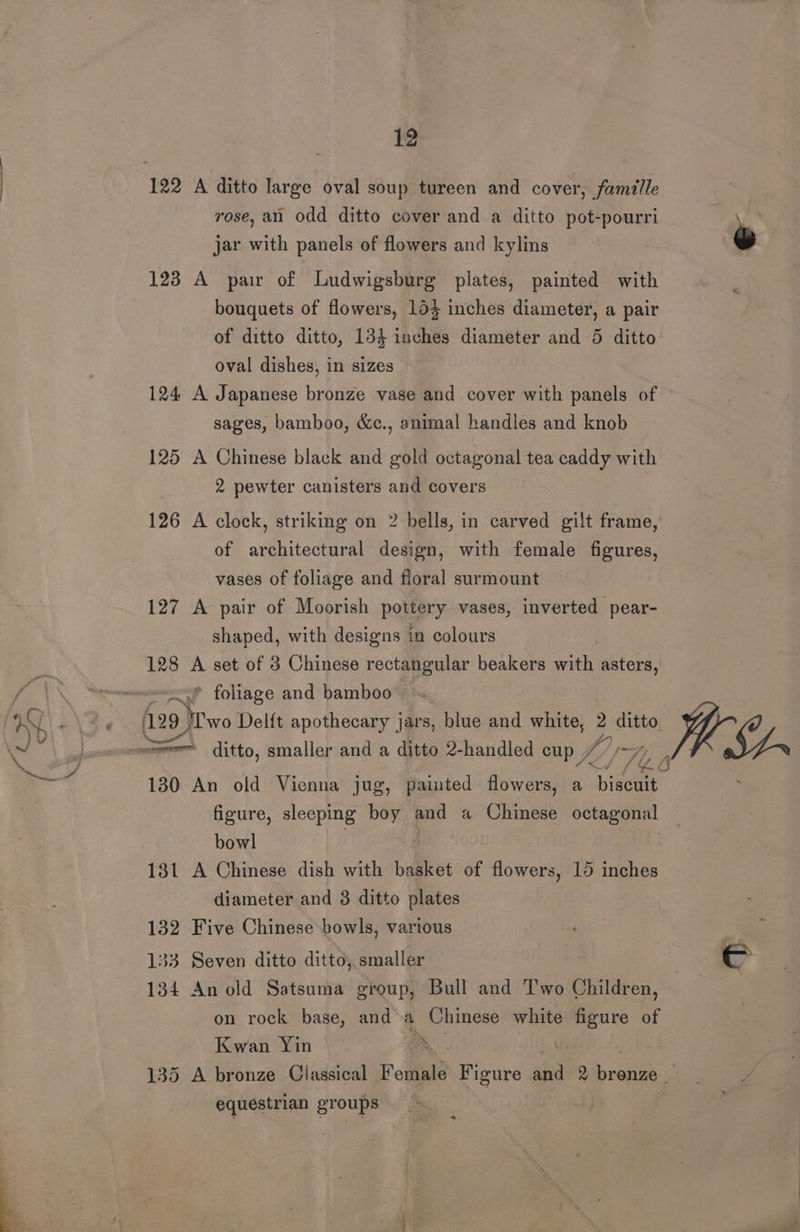 12
122 A ditto large oval soup tureen and cover, famille
rose, an odd ditto cover and a ditto pot-pourri
jar with panels of flowers and kylins
123 A pair of Ludwigsburg plates, painted with
bouquets of flowers, 15½ inches diameter, a pair
of ditto ditto, 13½ inches diameter and 5 ditto
oval dishes, in sizes
124 A Japanese bronze vase and cover with panels of
sages, bamboo, &c., animal handles and knob
125 A Chinese black and gold octagonal tea caddy with
2 pewter canisters and covers
126 A clock, striking on 2 bells, in carved gilt frame,
of architectural design, with female figures,
vases of foliage and floral surmount
127 A pair of Moorish pottery vases, inverted pear-
shaped, with designs in colours
128 A set of 3 Chinese rectangular beakers with asters,
foliage and bamboo
129 Two Delft apothecary jars, blue and white, 2 ditto
ditto, smaller and a ditto 2-handled cup
130 An old Vienna jug, painted flowers, a biscuit
figure, sleeping boy and a Chinese octagonal
bowl
131 A Chinese dish with basket of flowers, 15 inches
diameter and 3 ditto plates
132 Five Chinese bowls, various
133 Seven ditto ditto, smaller
134 An old Satsuma group, Bull and Two Children,
on rock base, and a Chinese white figure of
Kwan Yin
135 A bronze Classical Female Figure and 2 bronze
equestrian groups